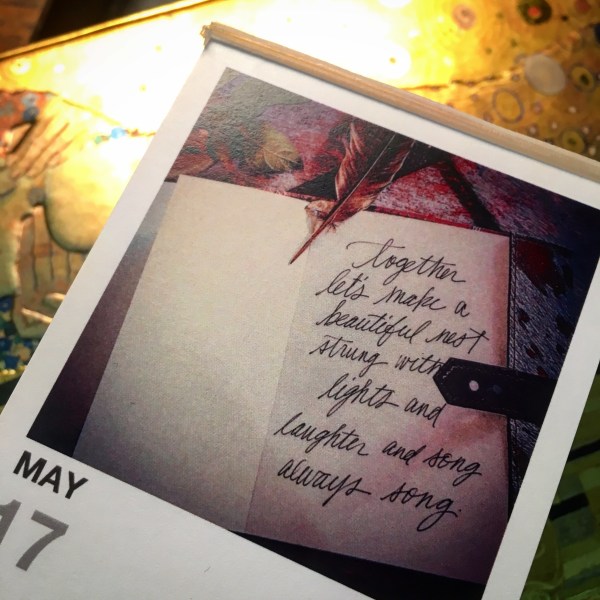 together
let's make a
beautiful nest
strung with
lights and
laughter and song
always song.
MAY
17